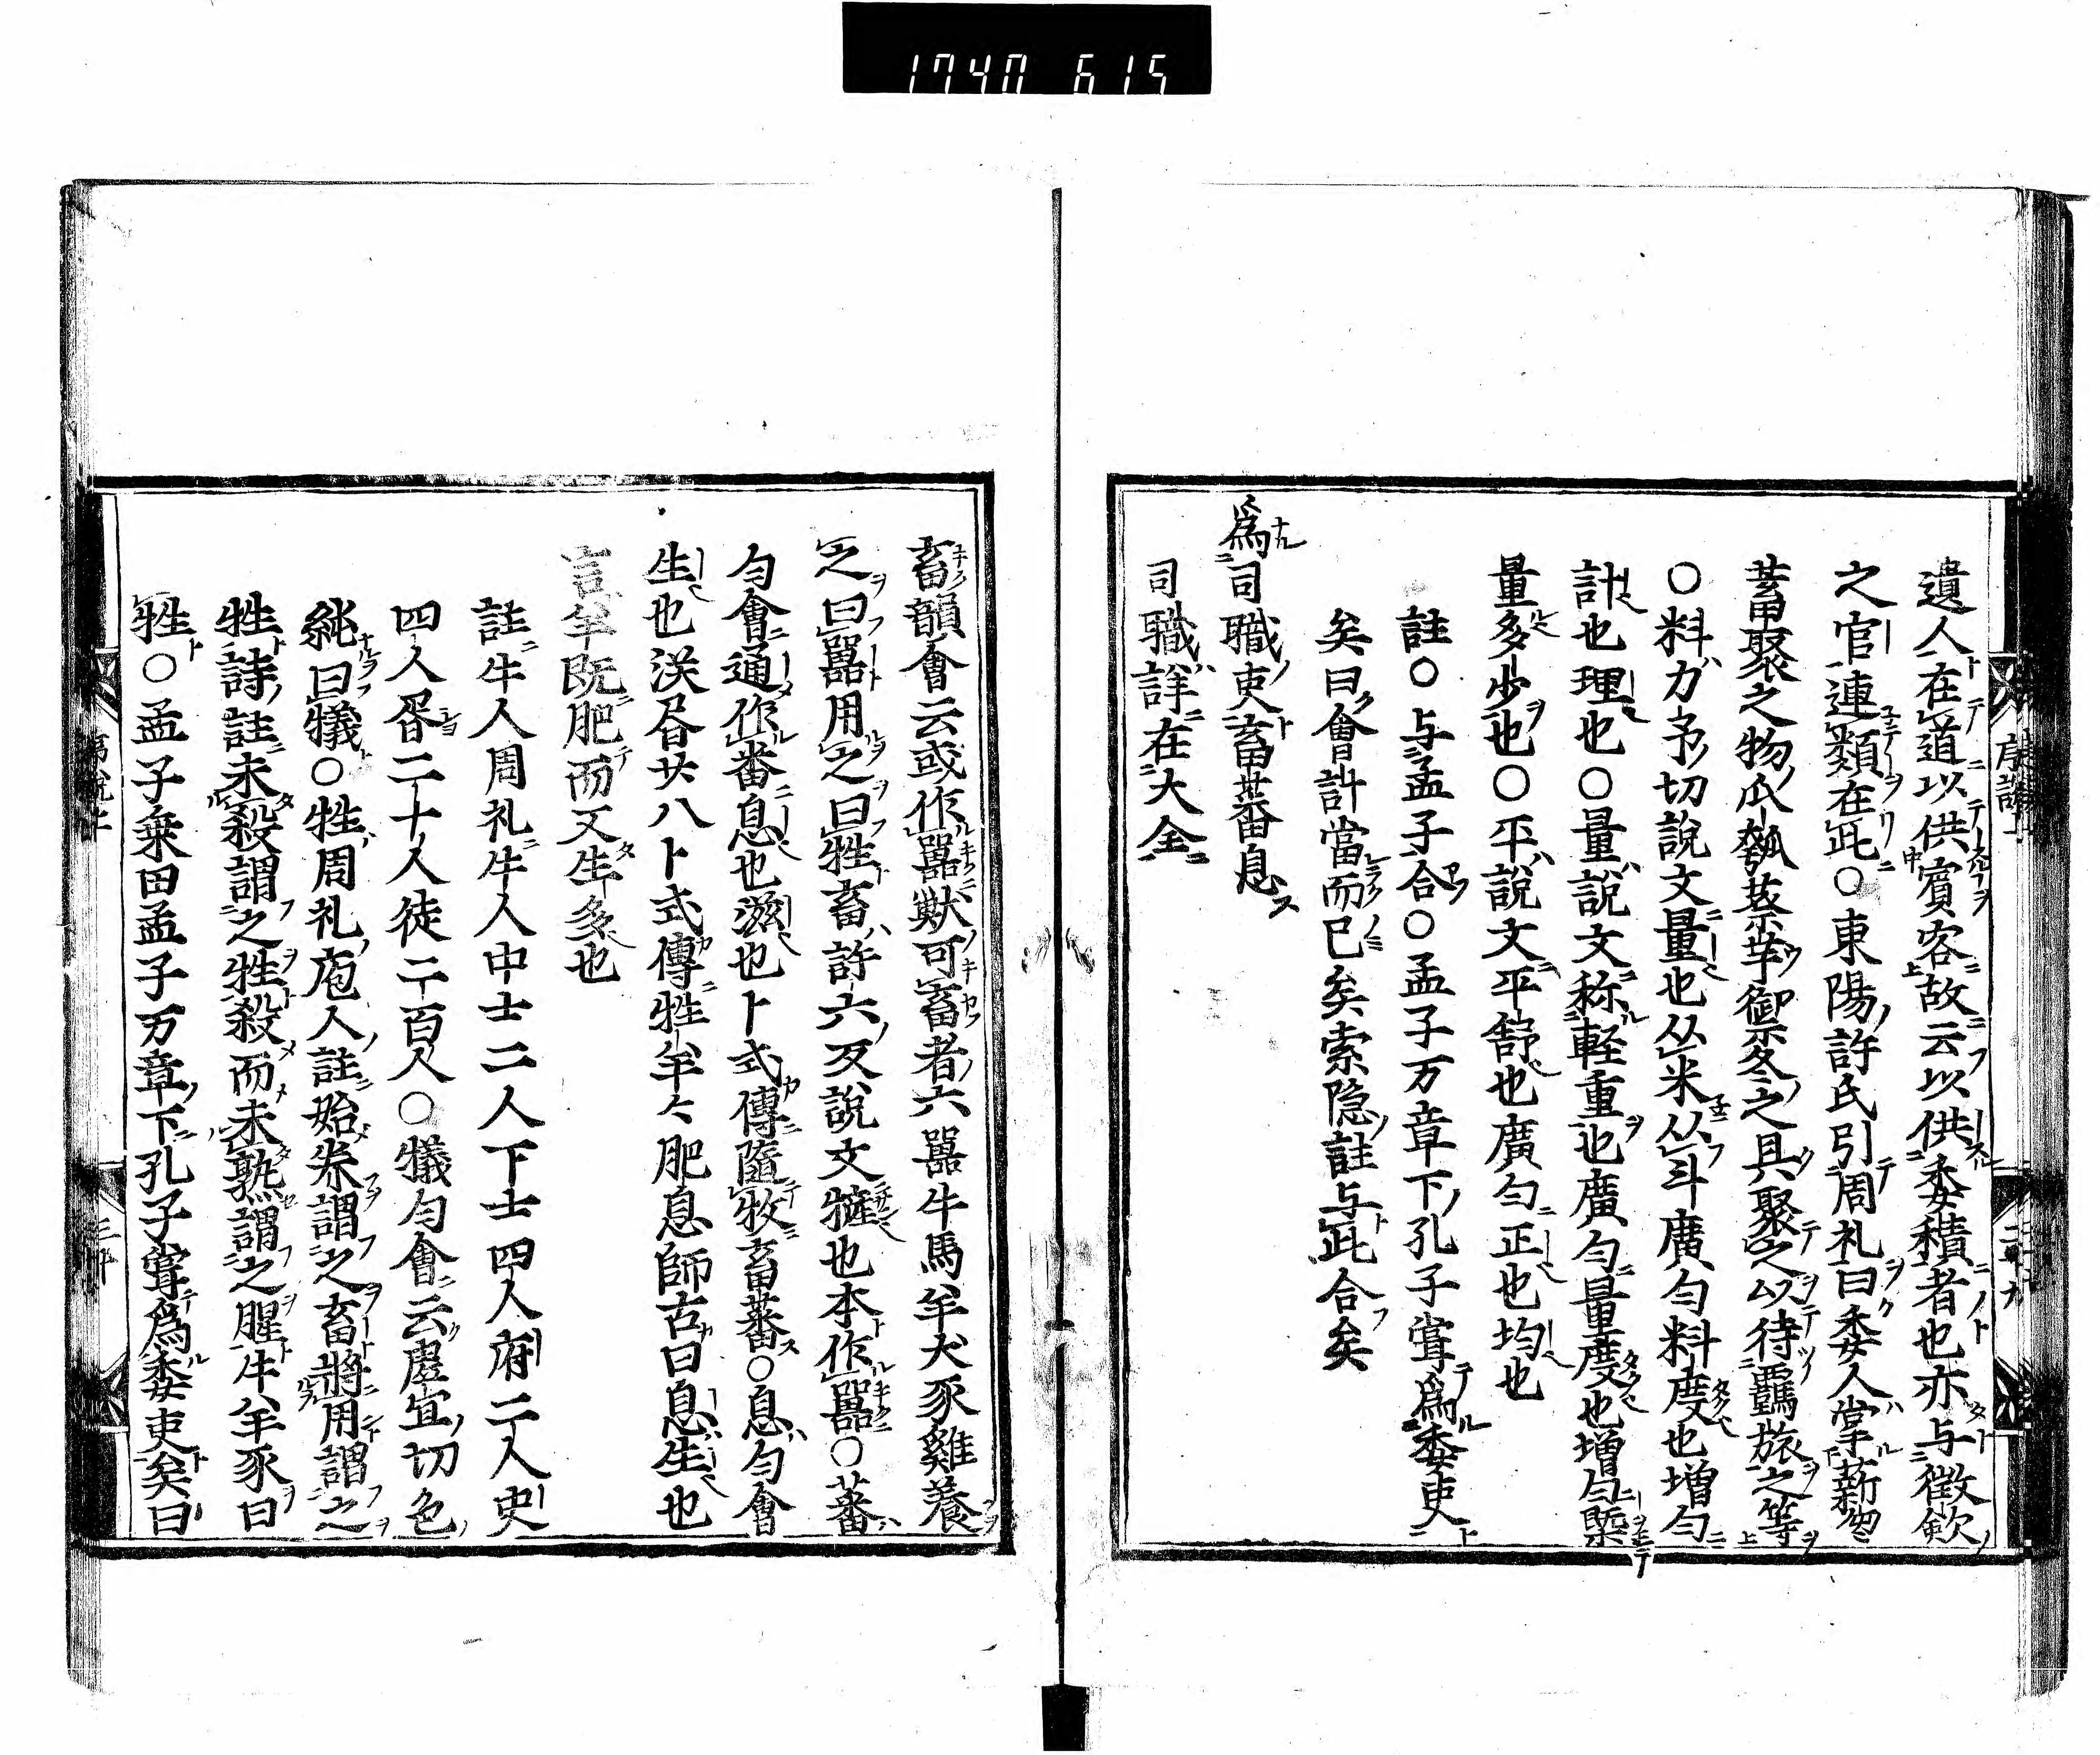 1740 615
遺人在道以供賓客故云以供委積者也亦与徴歛
之官連類在此○東陽許氏引周礼曰委人掌薪芻
蓄聚之物瓜瓠葵芋御冬之具聚之以待羈旅之等
○料力予切説文量也从米从斗廣匀料度也増匀
計也理也○量説文称軽重也廣匀量度也増匀槩
量多少也○平説文平舒也廣匀正也均也
註○与孟子合○孟子万章下孔子甞為委吏
矣曰會計當而已矣索隐註与此合矣
為司職吏畜蕃息
司職詳在大全
畜韻會云或作嘼獣可畜者六嘼牛馬羊犬豕雞養
之曰嘼用之曰牲畜許六反説文㹌也本作嘼○蕃
匀會通作番息也滋也卜式傳隨牧畜蕃○息匀會
生也漢昏廾八卜式傳牲羊々肥息師古曰息生也
言羊既肥而又生多也
註牛人周礼牛人中士二人下士四人府二人史
四人胥二十人徒二百人○犠匀會云虚宜切色
純曰犠○牲周礼庖人註始养謂之畜將用謂之
牲詩註未殺謂之牲殺而未熟謂之腥牛羊豕曰
牲○孟子乗田孟子万章下孔子甞為委吏矣曰